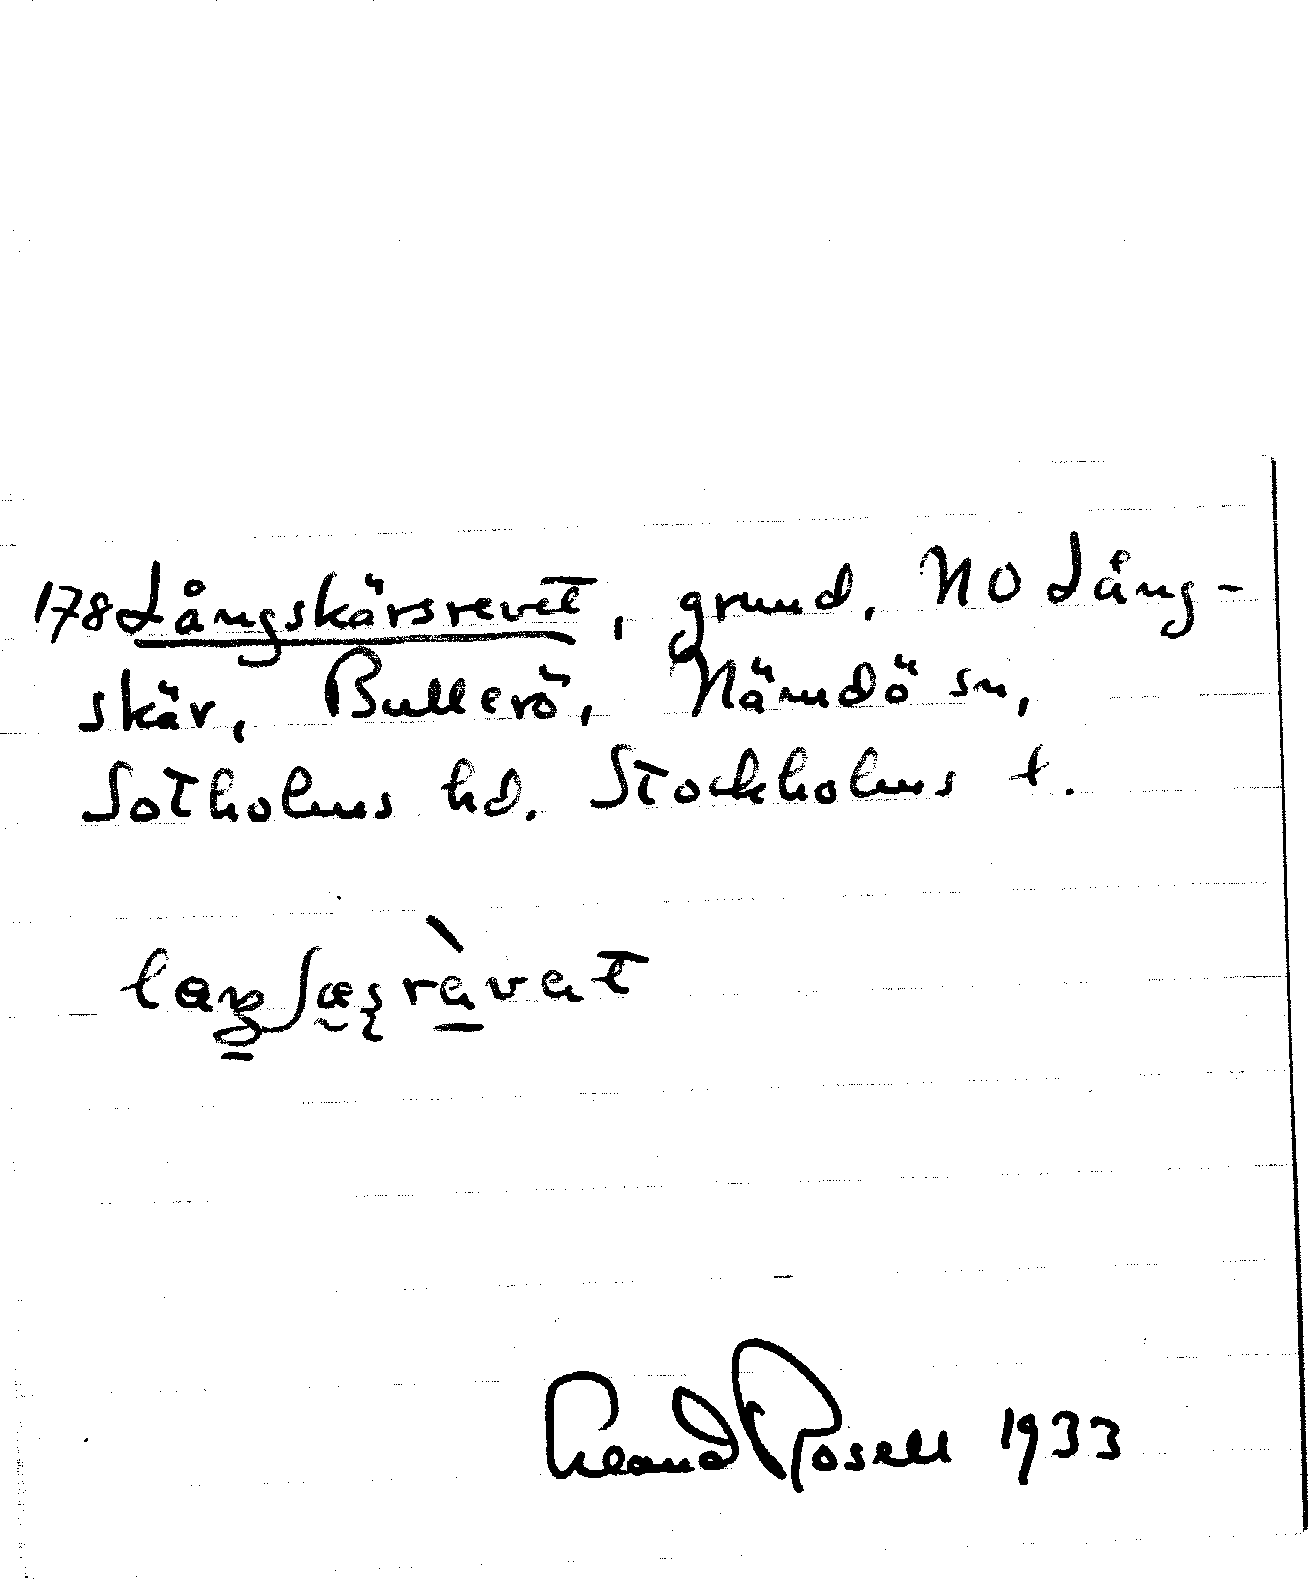 178 Långskärsrevet, grund. NO Lång-
skär, Bullerö, Nämdö sn,
Sotholms hd. Stockholms l.
Claud Rosell 1933